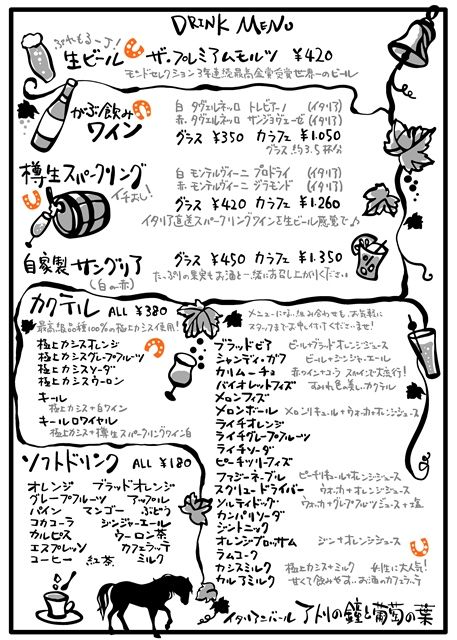 DRINK MENU
ぷれもるーノ!
生ビール ザ・プレミアムモルツ ¥420
モンドセレクション3年連続最高金賞受賞世界一のビール
がぶ飲みワイン
白 タヴェルネッロ トレビアーノ (イタリア)
赤 タヴェルネッロ サンジョヴェーゼ (イタリア)
グラス ¥350 カラフェ ¥1.050
グラス約3.5杯分
樽生スパークリング
イチおし!
白 モンテルヴィーニ プロドライ (イタリア)
赤 モンテルヴィーニ ジラモンド (イタリア)
グラス ¥420 カラフェ ¥1.260
イタリア直送スパークリングワインを生ビール感覚で♪
自家製 サングリア
(白or赤)
グラス ¥450 カラフェ ¥1.350
たっぷりの果実もお酒と一緒にお召し上がりください
カクテル ALL ¥380
最高級品種100%の極上カシス使用!
極上カシスオレンジ
極上カシスグレープフルーツ
極上カシスソーダ
極上カシスウーロン
キール
極上カシス+白ワイン
キールロワイヤル
極上カシス+樽生スパークリングワイン白
メニューにない組み合わせも、お気軽に
スタッフまでお申し付けくださいませ!
ブラッドビア ビール+ブラッドオレンジジュース
シャンディ・ガフ ビール+ジンジャーエール
カリムーチョ 赤ワイン+コーラ スペインで大流行!
バイオレットフィズ すみれ色の美しいカクテル
メロンフィズ
メロンボール メロンリキュール+ウォッカ+オレンジジュース
ライチオレンジ
ライチグレープフルーツ
ライチソーダ
ピーチツリーフィズ
ファジーネーブル ピーチリキュール+オレンジジュース
スクリュードライバー ウォッカ+オレンジジュース
ソルティドッグ ウォッカ+グレープフルーツジュース+塩
カンパリソーダ
ジントニック
オレンジブロッサム ジン+オレンジジュース
ラムコーク
カシスミルク 極上カシス+ミルク 女性に大人気!
カルアミルク 甘くて飲みやすいお酒のカフェラッテ
ソフトドリンク ALL ¥180
オレンジ ブラッドオレンジ
グレープフルーツ アップル
パイン マンゴー ぶどう
コカコーラ ジンジャーエール
カルピス ウーロン茶
エスプレッソ カフェラッテ
コーヒー 紅茶 ミルク
イタリアンバール アトリの鐘と葡萄の葉